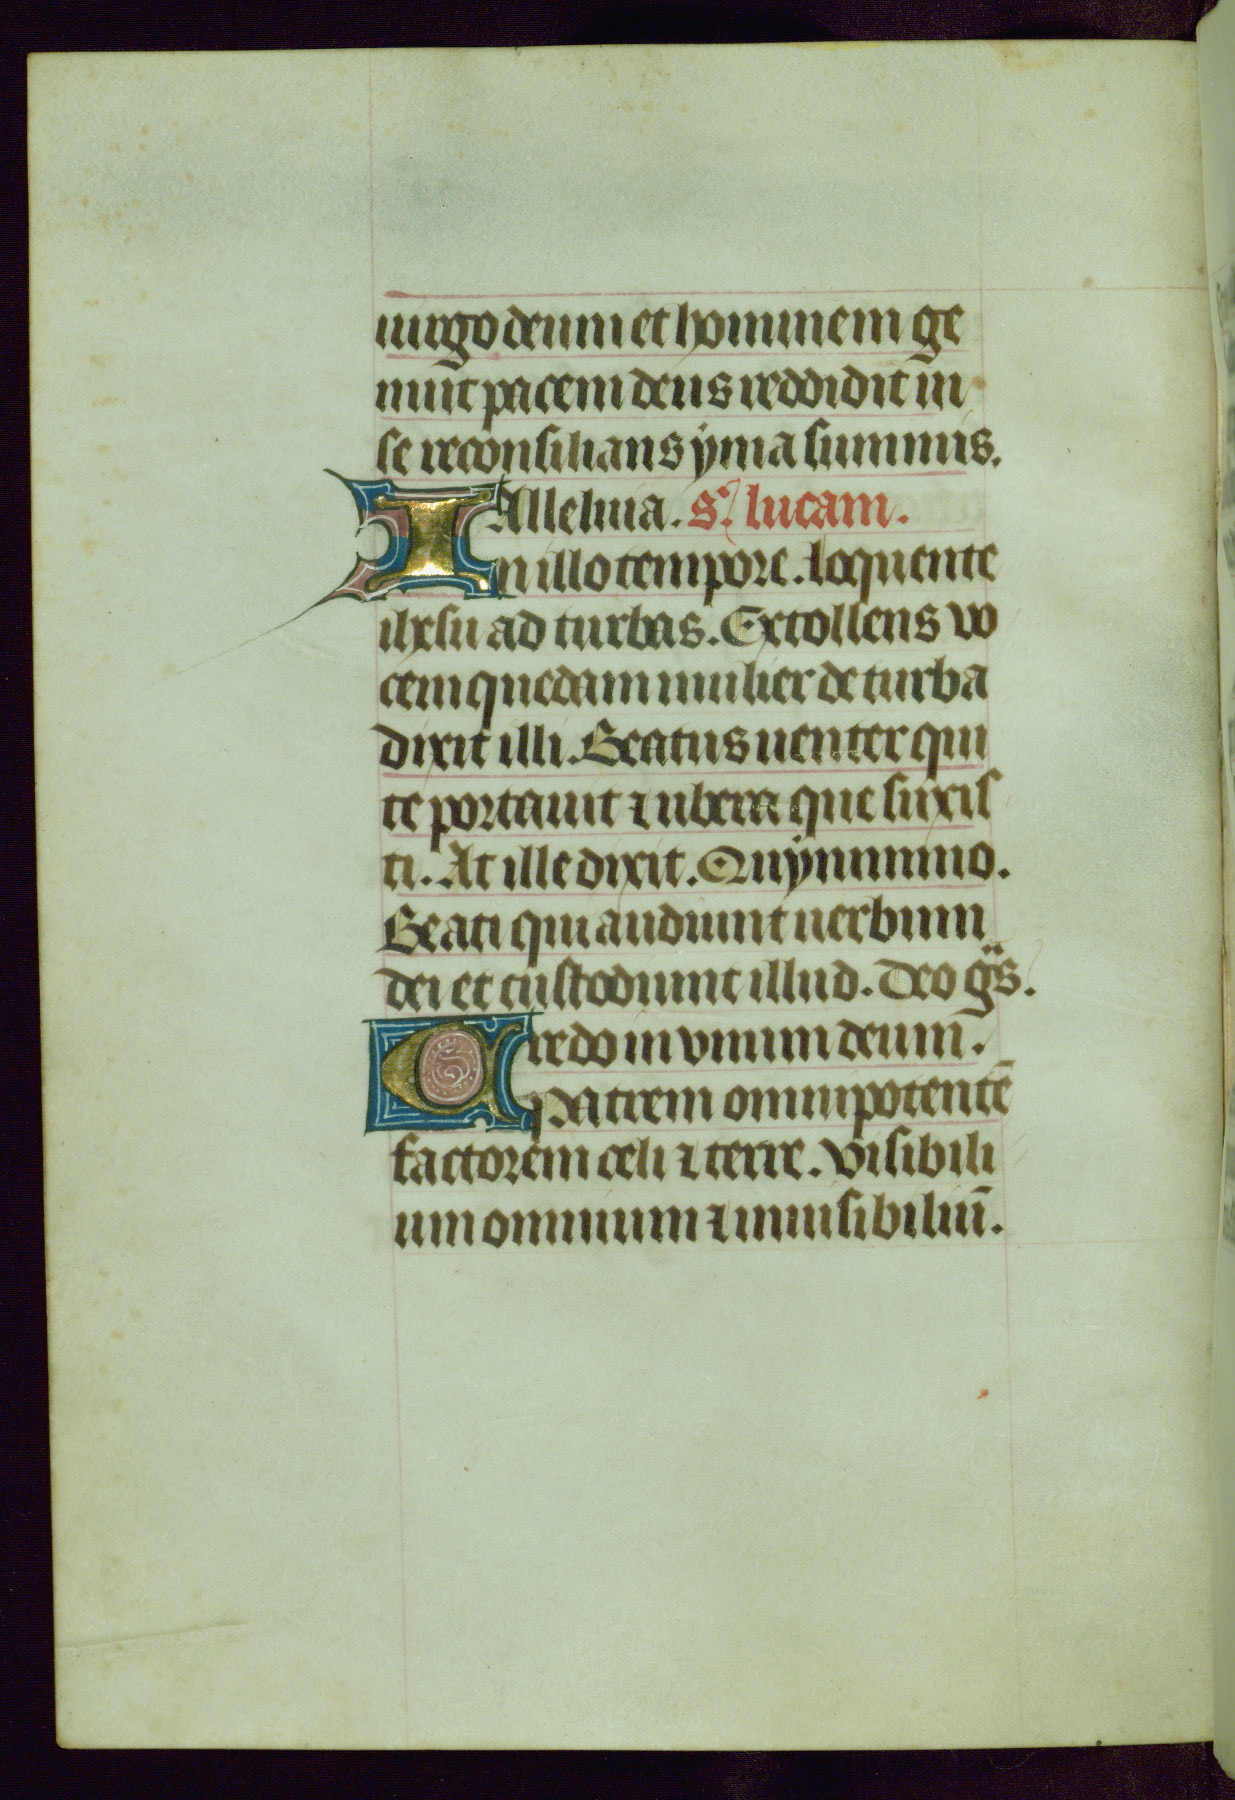 uirgo deum et hominem ge
nuit pacem deus reddidit in
se reconsilians yma summis.
Alleluia. S. lucam.
In illo tempore. loquente
ihesu ad turbas. Extollens vo
cem quedam mulier de turba
dixit illi. Beatus uenter qui
te portauit ⁊ ubera que suxis
ti. At ille dixit. Quynnimmo.
Beati qui audiunt uerbum
dei et custodiunt illud. Deo gs.
Credo in vnum deum.
Patrem omnipotentē
factorem celi ⁊ terre. Visibili
um omnium ⁊ inuisibiliū.